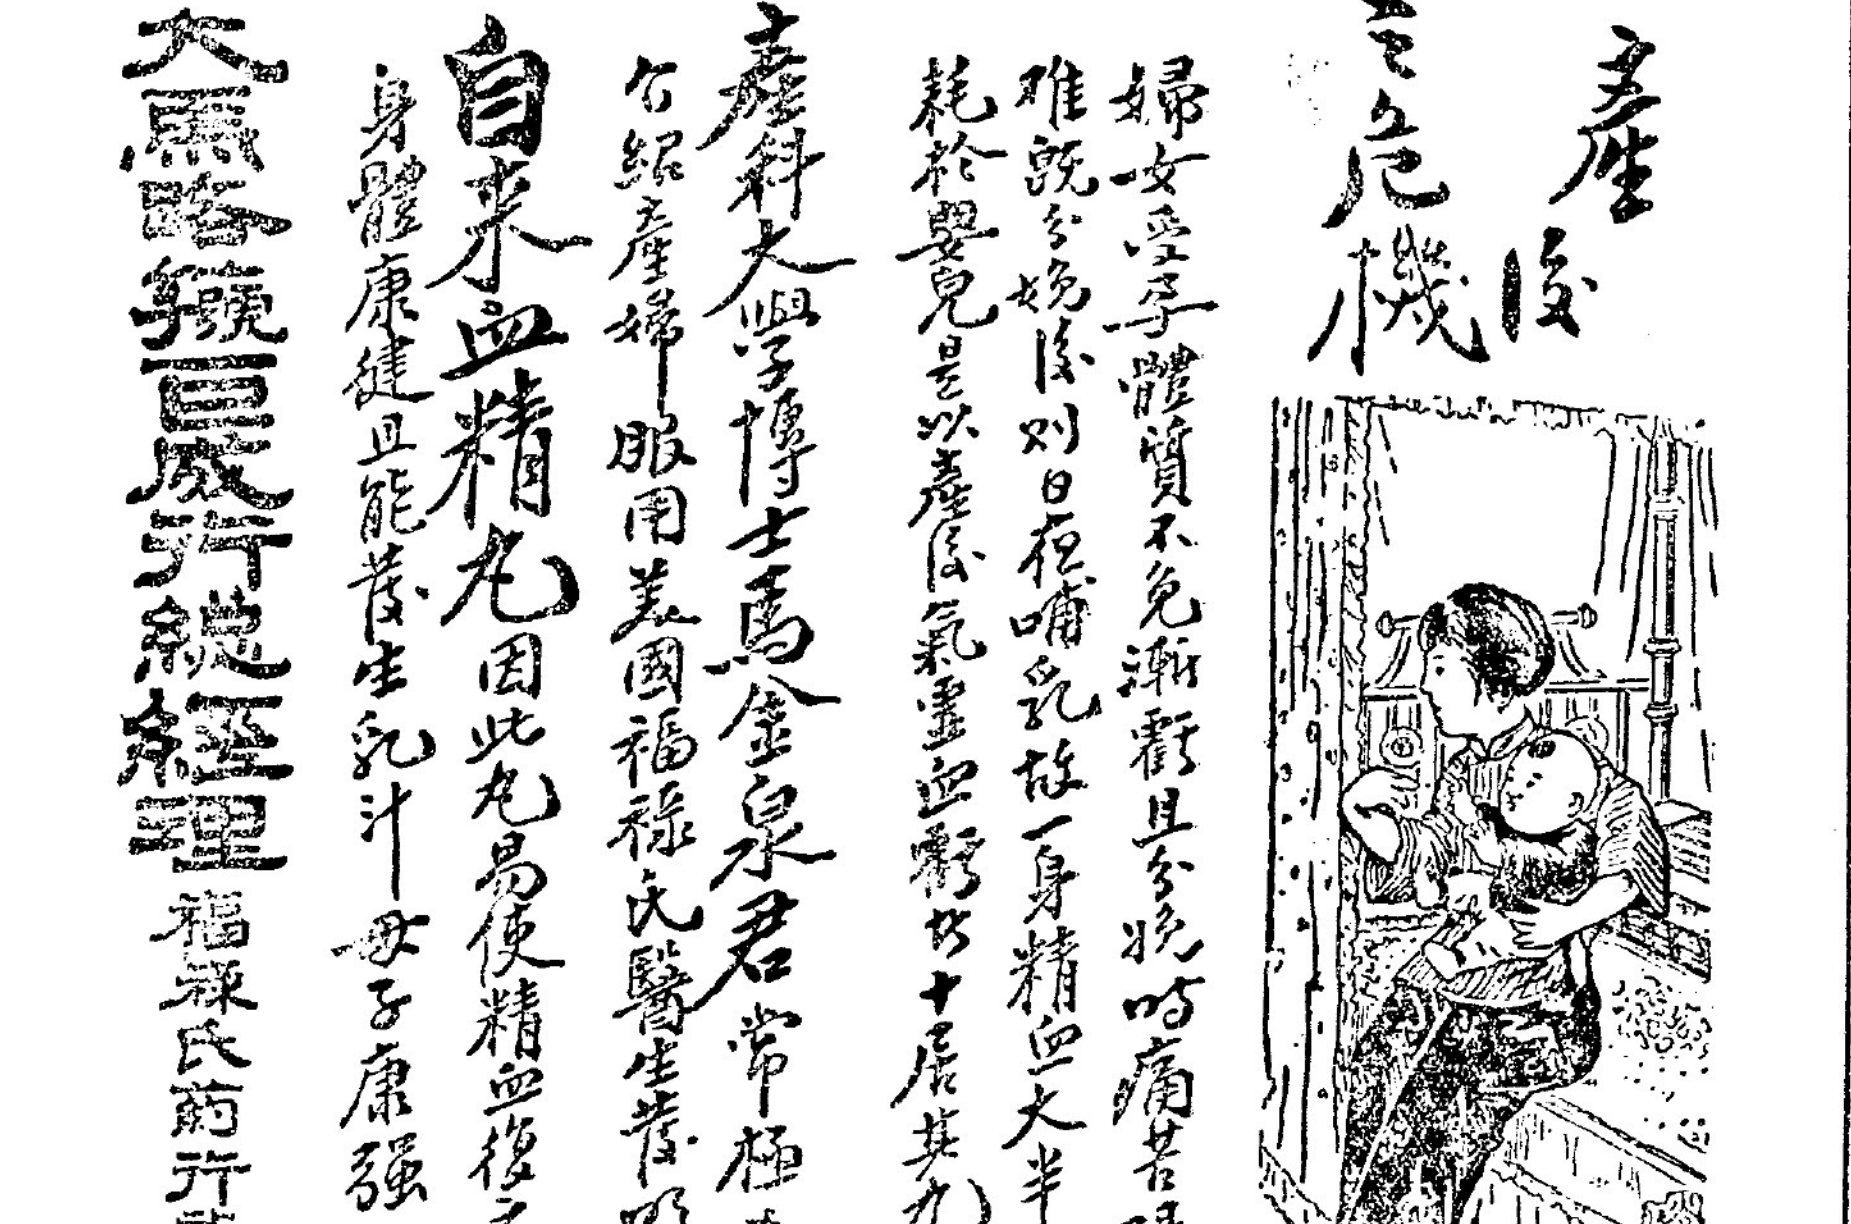 產後
之危機
婦女受孕體質不免漸虧且分娩時痛苦
难既分娩後則日夜哺乳故一身精血大半
耗於嬰兒是以產後氣虛血虧者十居其九
產科大學博士馬金泉君常極
介紹產婦服用美國福祿氏醫生發明
自来血精丸因此丸易使精血復
身體康健且能發生乳汁母子康强
大馬路 百成行總經理 福祿氏葯行